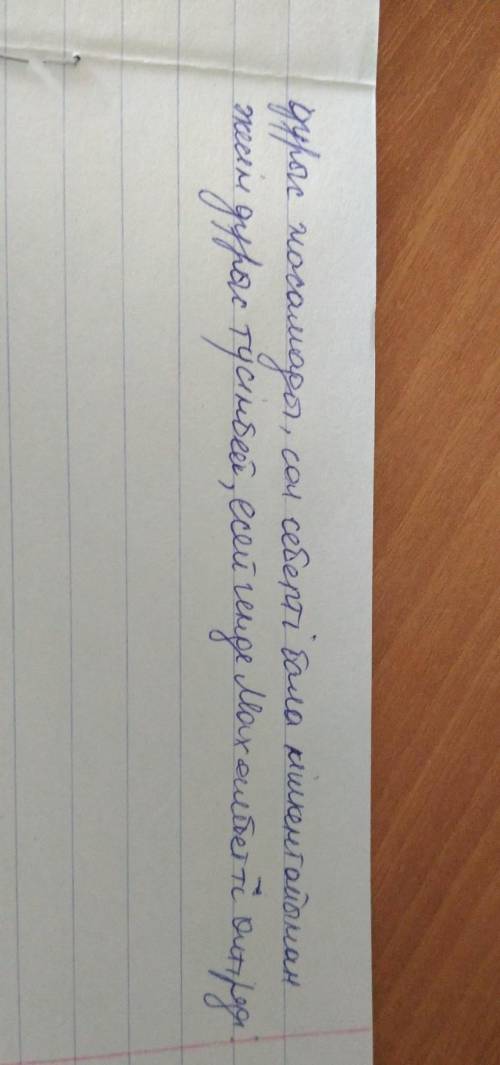 дұрыс жасамады, сол себепті бала кішкентайынан
жөнін дұрыс түсінбей, есейгенде Махамбетті өлтіреді.